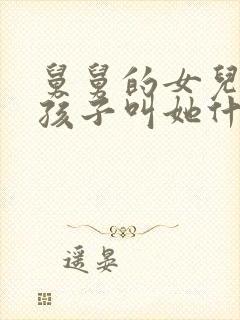 舅舅的女兒
孩子叫她什
遥晏